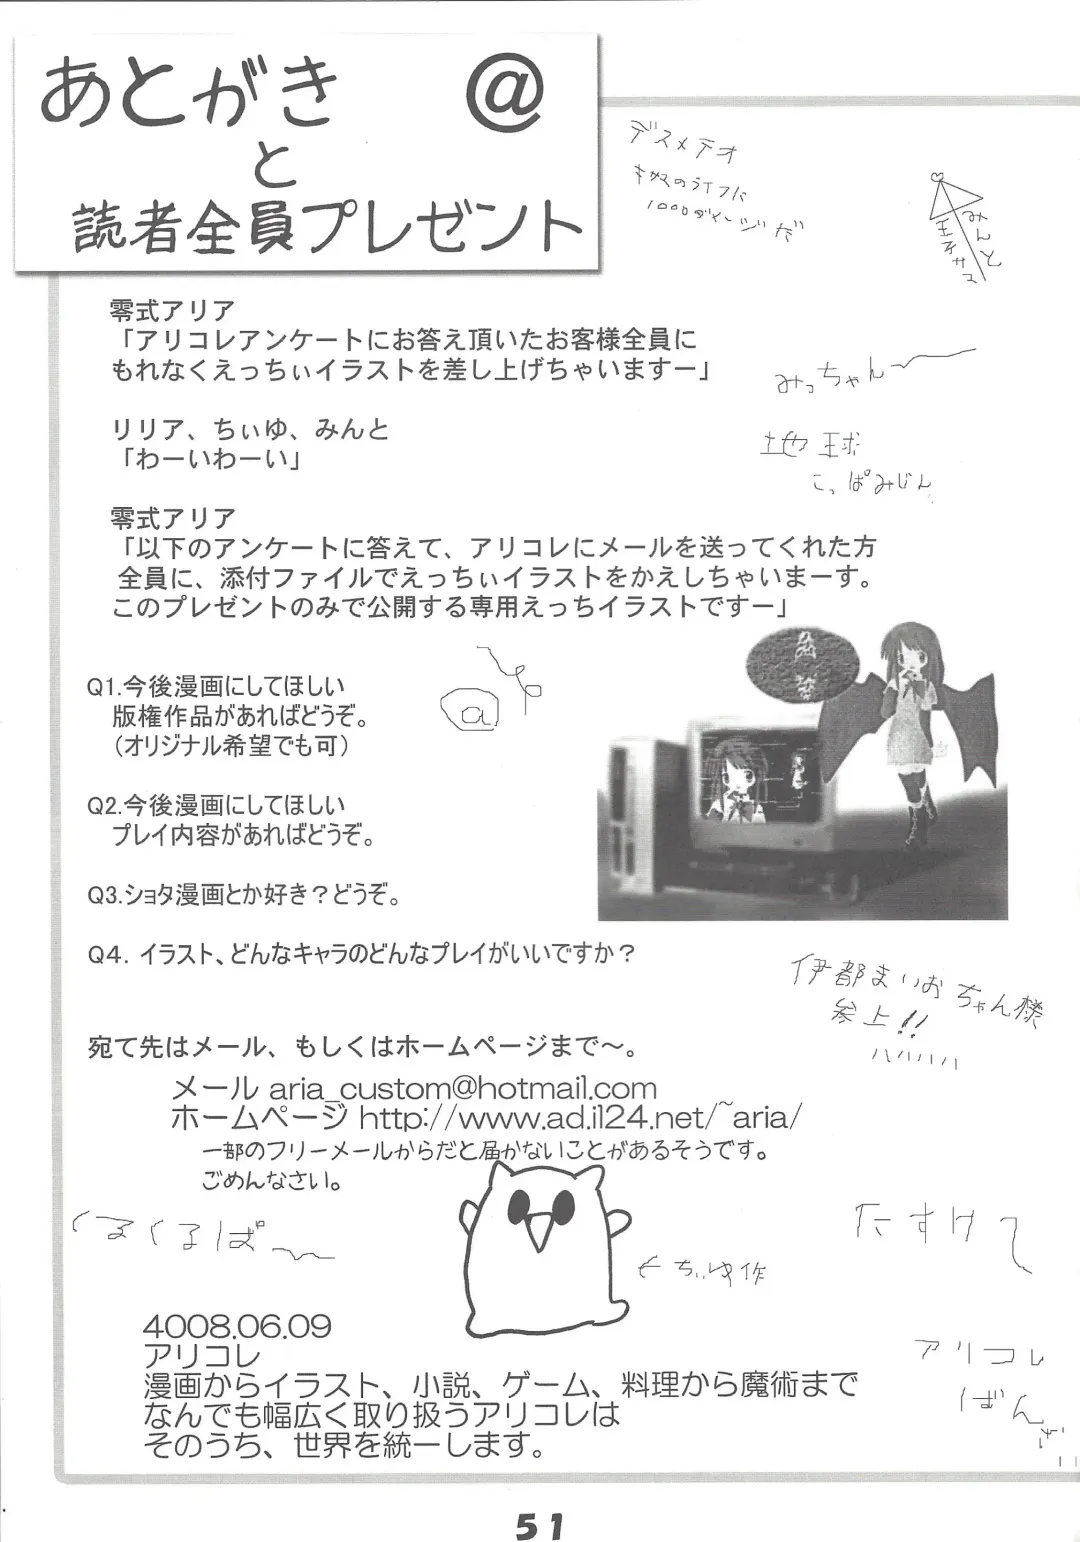 あとがき @
と
読者全員プレゼント
デスメテオ
キサマのライフに
1000ダメージだ
みんと
王子サマ
零式アリア
「アリコレアンケートにお答え頂いたお客様全員に
もれなくえっちぃイラストを差し上げちゃいますー」
みっちゃん〜
リリア、ちぃゆ、みんと
「わーいわーい」
地球
こっぱみじん
零式アリア
「以下のアンケートに答えて、アリコレにメールを送ってくれた方
全員に、添付ファイルでえっちぃイラストをかえしちゃいまーす。
このプレゼントのみで公開する専用えっちイラストですー」
Q1.今後漫画にしてほしい
版権作品があればどうぞ。
（オリジナル希望でも可）
@
Q2.今後漫画にしてほしい
プレイ内容があればどうぞ。
Q3.ショタ漫画とか好き？どうぞ。
Q4. イラスト、どんなキャラのどんなプレイがいいですか？
伊都まいおちゃん様
参上!!
ハハハハハ
宛て先はメール、もしくはホームページまで〜。
メール aria_custom@hotmail.com
ホームページ http://www.ad.il24.net/~aria/
一部のフリーメールからだと届かないことがあるそうです。
ごめんなさい。
くるくるぱ〜
たすけて
←ちぃゆ作
4008.06.09
アリコレ
漫画からイラスト、小説、ゲーム、料理から魔術まで
なんでも幅広く取り扱うアリコレは
そのうち、世界を統一します。
アリコレ
ばんざい
51